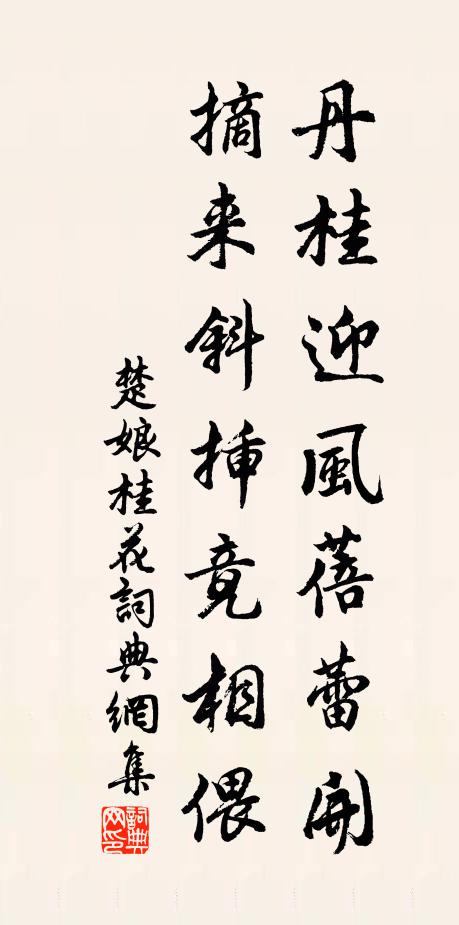 丹桂迎風蓓蕾開
摘来斜挿竟相偎
楚娘桂花詞典網集
詞典網印